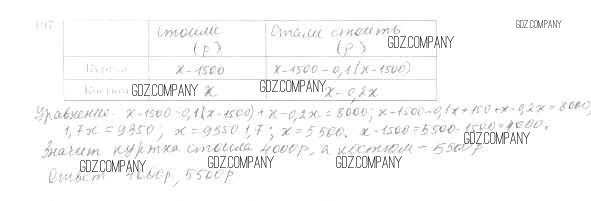 197 GDZ.COMPANY
стоили (р) Стали стоить (р)
GDZ.COMPANY
Куртка x-1500 x-1500-0,1(x-1500)
Костюм GDZ.COMPANY x GDZ.COMPANY x-0,2x
Уравнение: x-1500-0,1(x-1500)+x-0,2x=8000; x-1500-0,1x+150+x-0,2x=8000;
1,7x=9350; x=9350:1,7; x=5500. x-1500=5500-1500=4000.
GDZ.COMPANY
Значит куртка стоила 4000р, а костюм - 5500р
GDZ.COMPANY GDZ.COMPANY GDZ.COMPANY
Ответ 4000р, 5500р